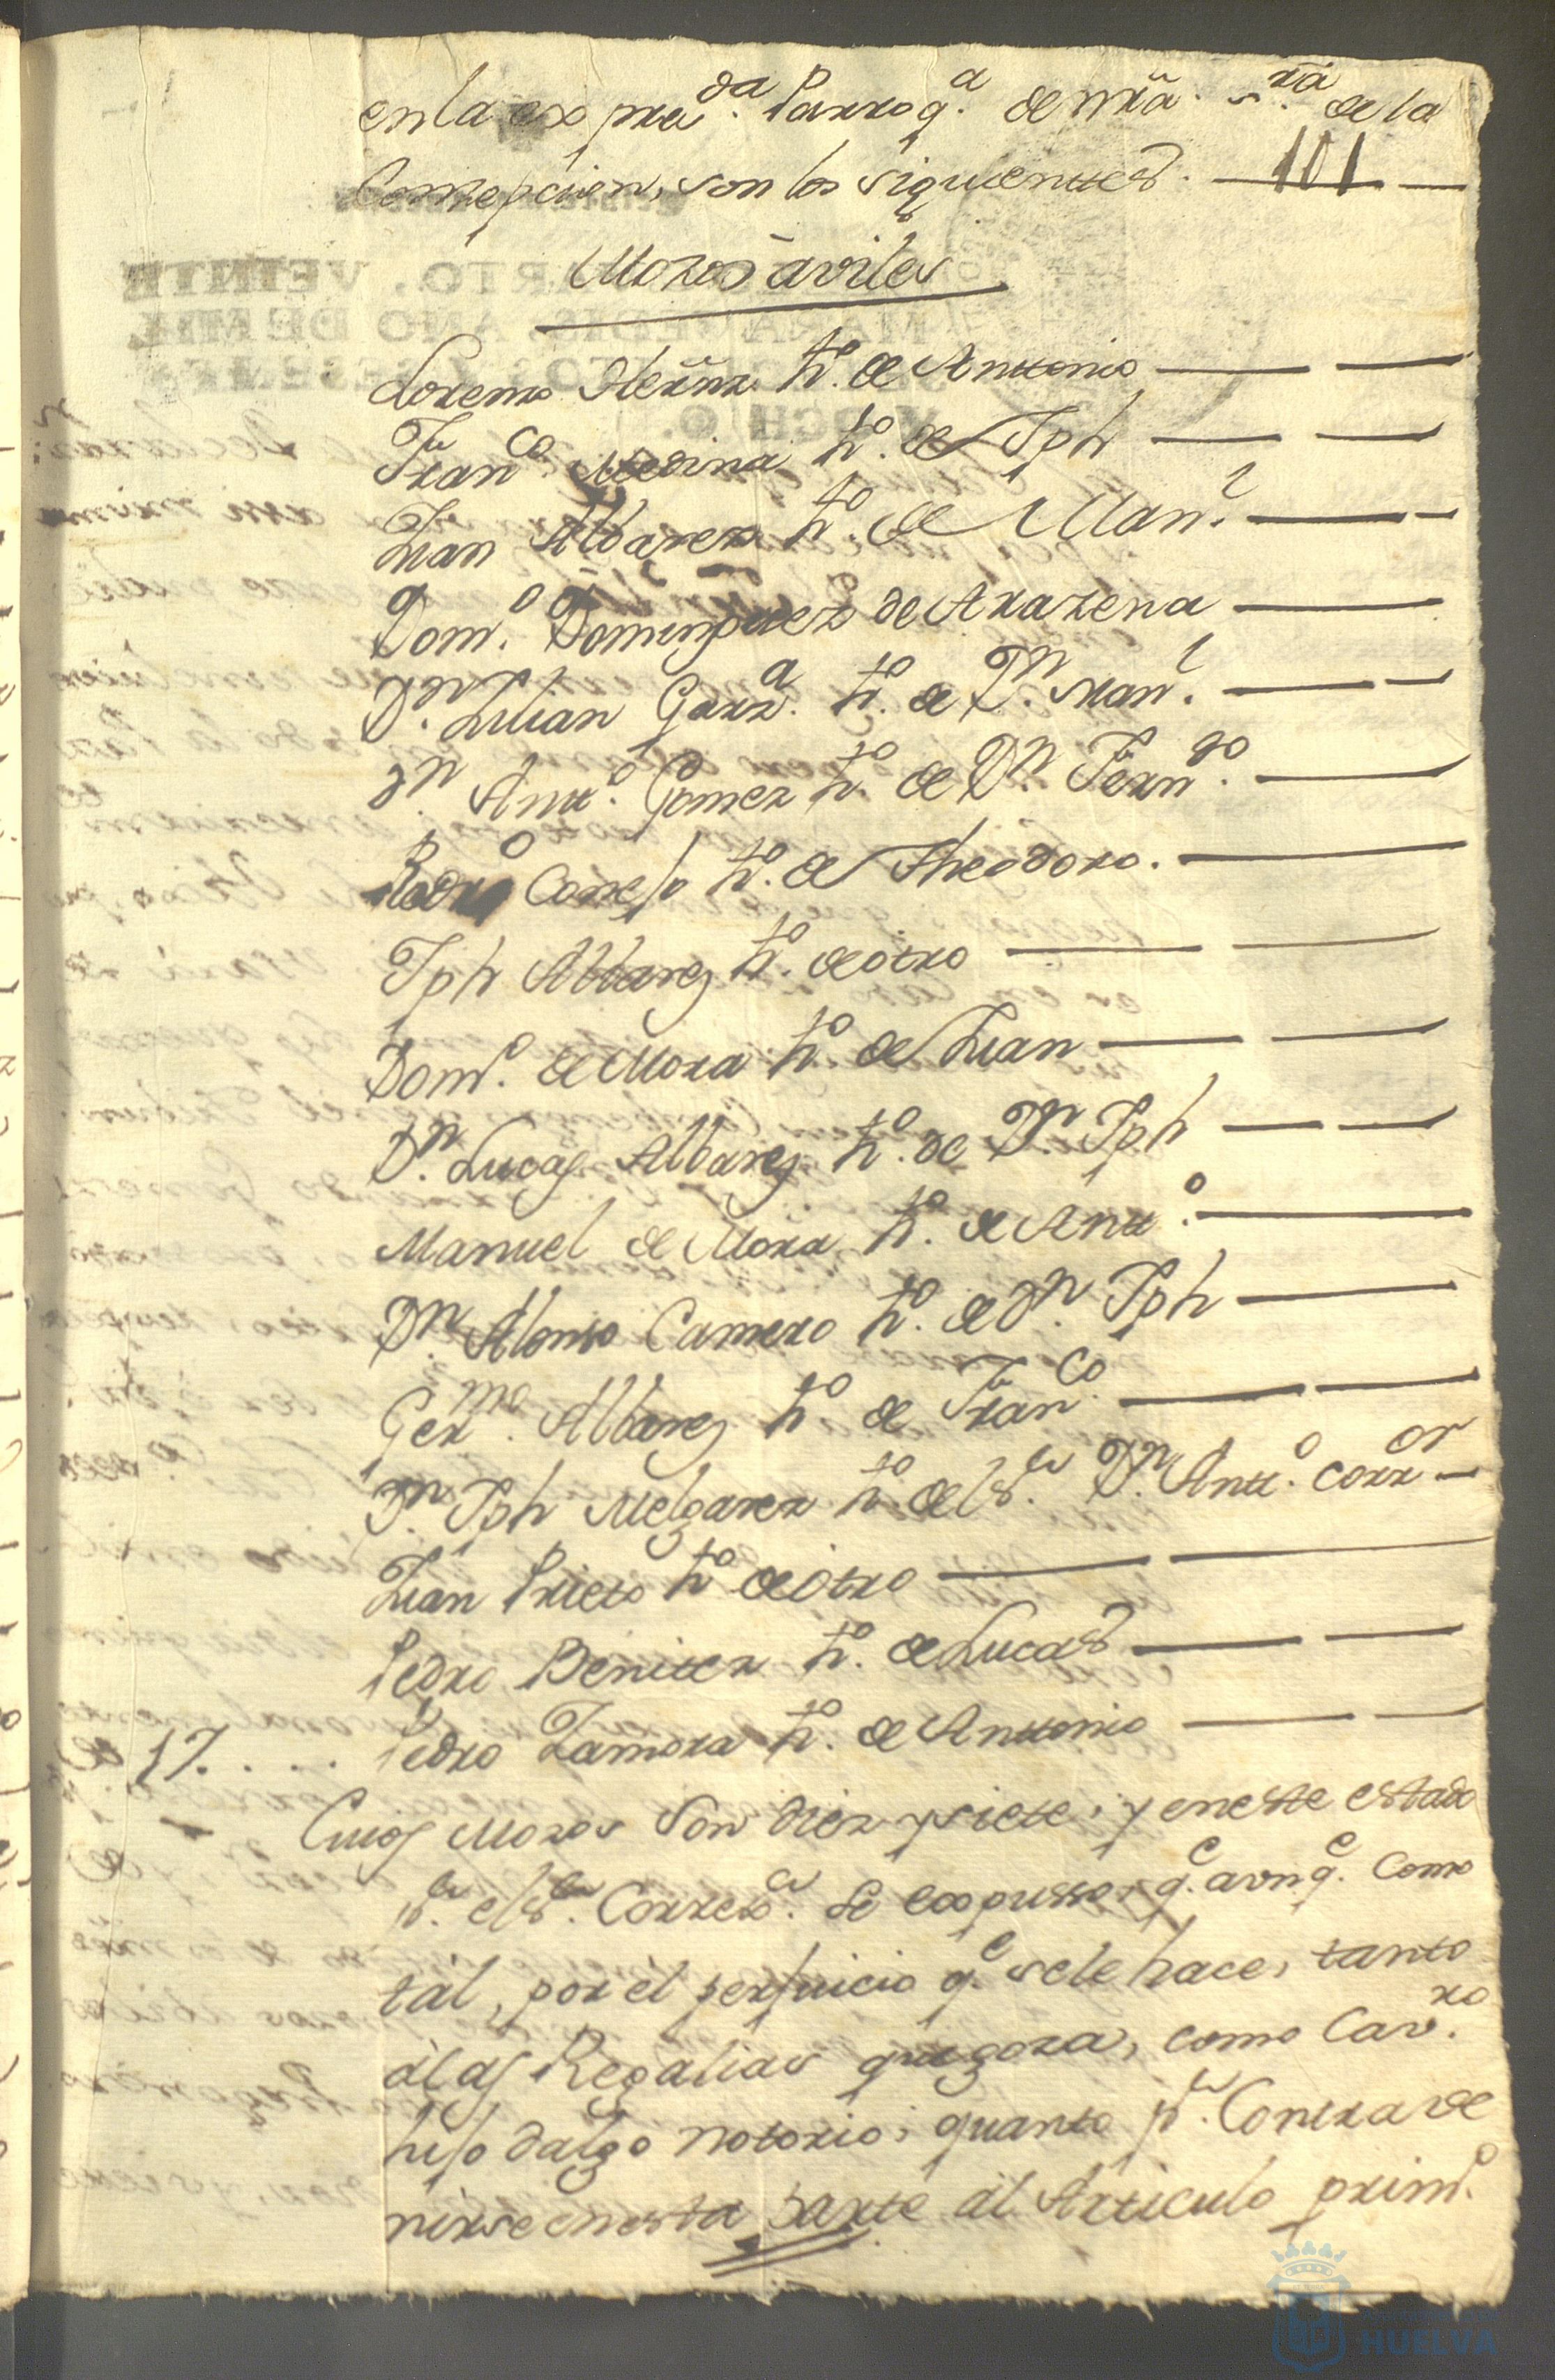 en la expresda. Parroqa. de nra. sra de la
Conzepcion, son los siguientes. 101
Mozos aviles
Lorenzo Hernz. ho. de Antonio
Franco. Medina ho. de Jph
Juan Albarez ho. de Manl.
Domo. Dominguez de Arazena
Dn. Julian Garza. ho. de Dn. Manl.
Dn. Anto. Gomez ho. de Dn. Ferndo.
Pedro Consejo ho. de Theodoro.
Jph Albarez ho. de otro
Domo. de Mora ho. de Juan
Dn. Lucas Albarez ho. de Dn. Jph
Manuel de Mora ho. de Anto.
Dn. Alonso Camero ho. de Dn. Jph
Germo. Albarez ho. de Franco.
Dn. Jph Melgarez ho. del Sr. Dn. Anto. Corror
Juan Prieto ho de otro
Pedro Benitez ho. de Lucas
17. . . . Pedro Zamora ho. de Antonio
Cuios Mozos son diez y siete, y en este estado
pr. el Sr. Corretr. se expusso, qe. avnqe. como
tál, por él perjuicio qe se le hace, tanto
álas Regalias que goza, como Cavro.
hijo dalgo notorio, quanto pr. Contrave
nirse en esta parte ál Articulo primo.
HUELVA